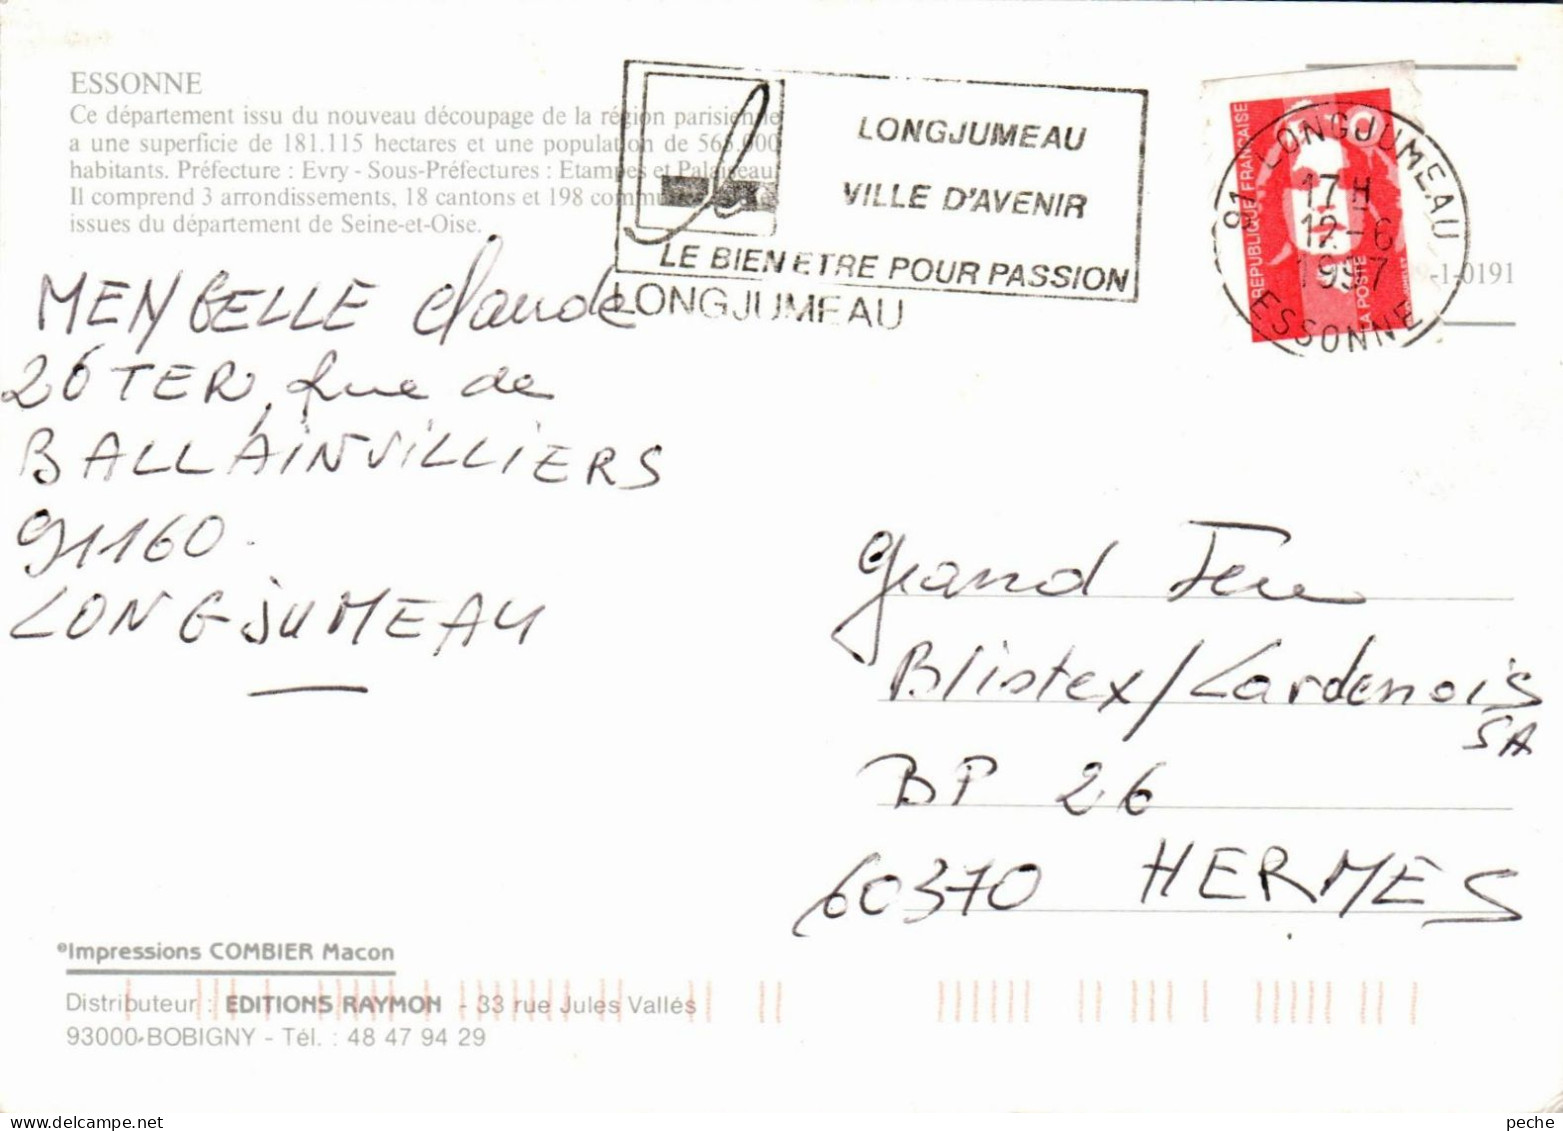 ESSONNE
Ce département issu du nouveau découpage de la région parisienne
a une superficie de 181.115 hectares et une population de 565.000
habitants. Préfecture : Evry - Sous-Préfectures : Etampes et Palaiseau
Il comprend 3 arrondissements, 18 cantons et 198
issues du département de Seine-et-Oise.
LONGJUMEAU
VILLE D'AVENIR
LE BIEN ETRE POUR PASSION
LONGJUMEAU
REPUBLIQUE FRANÇAISE
LA POSTE
91 LONGJUMEAU
17 H
12-6
1997
ESSONNE
-1-0191
Claude
26 TER, Rue de
BALLAINVILLIERS
91160
LONGJUMEAU
Grand Jeu
Blistex/Cardenois
SA
BP 26
60370 HERMES
Impressions COMBIER Macon
Distributeur : EDITIONS RAYMON - 33 rue Jules Vallés
93000 BOBIGNY - Tél. : 48 47 94 29
peche